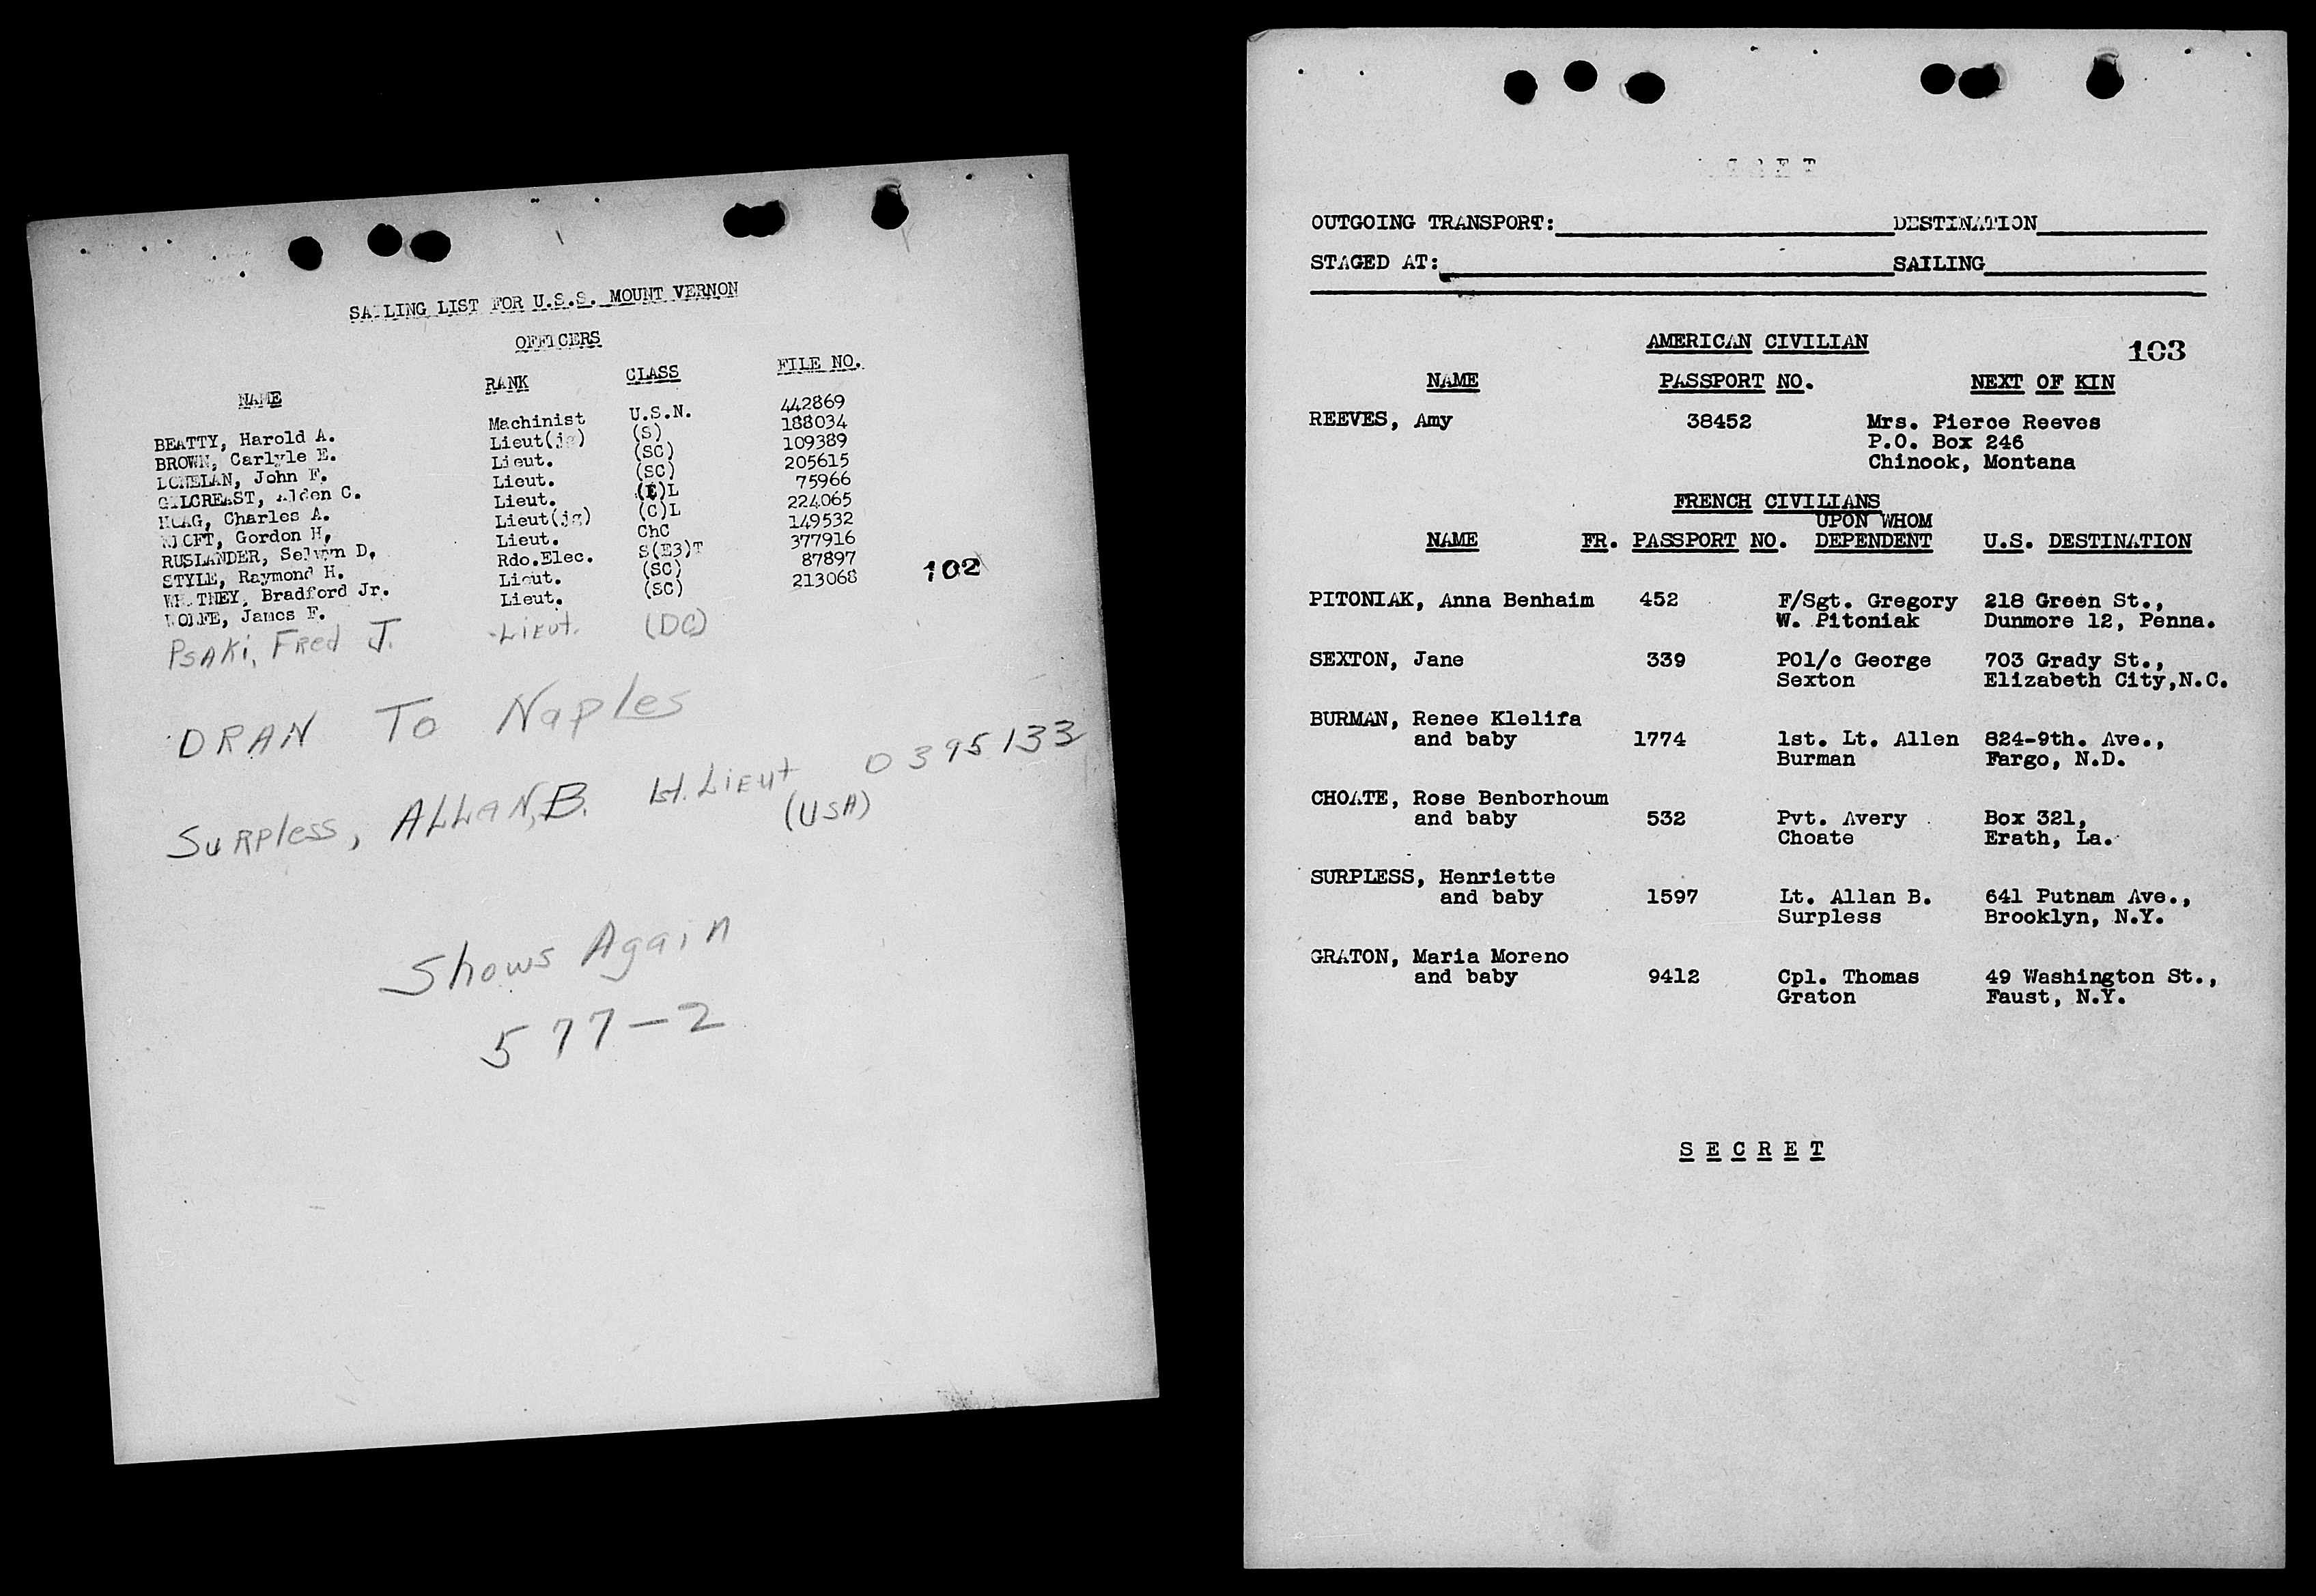 SAILING LIST FOR U.S.S. MOUNT VERNON
OFFICERS
NAME RANK CLASS FILE NO.
BEATTY, Harold A. Machinist U.S.N. 442869
BROWN, Carlyle E. Lieut(jg) (S) 188034
DONELAN, John F. Lieut. (SC) 109389
GILCREAST, Alden C. Lieut. (SC) 205615
HOAG, Charles A. Lieut. (E)L 75966
Gordon H, Lieut(jg) (C)L 224065
RUSLANDER, Selwyn D, Lieut. ChC 149532
STYLE, Raymond H. Rdo.Elec. S(E3)T 377916
WHITNEY, Bradford Jr. Lieut. (SC) 87897
WOLFE, James F. Lieut. (SC) 213068
102
Psaki, Fred J. Lieut. (DC)
DRAN To Naples
Surpless, ALLAN, B. 1st. Lieut 0395133
(USA)
Shows Again
577-2
OUTGOING TRANSPORT: DESTINATION
STAGED AT: SAILING
AMERICAN CIVILIAN
103
NAME PASSPORT NO. NEXT OF KIN
REEVES, Amy 38452 Mrs. Pierce Reeves
P.O. Box 246
Chinook, Montana
FRENCH CIVILIANS
UPON WHOM
NAME FR. PASSPORT NO. DEPENDENT U.S. DESTINATION
PITONIAK, Anna Benhaim 452 F/Sgt. Gregory 218 Green St.,
W. Pitoniak Dunmore 12, Penna.
SEXTON, Jane 339 PO1/c George 703 Grady St.,
Sexton Elizabeth City,N.C.
BURMAN, Renee Klelifa
and baby 1774 1st. Lt. Allen 824-9th. Ave.,
Burman Fargo, N.D.
CHOATE, Rose Benborhoum
and baby 532 Pvt. Avery Box 321,
Choate Erath, La.
SURPLESS, Henriette
and baby 1597 Lt. Allan B. 641 Putnam Ave.,
Surpless Brooklyn, N.Y.
GRATON, Maria Moreno
and baby 9412 Cpl. Thomas 49 Washington St.,
Graton Faust, N.Y.
S E C R E T